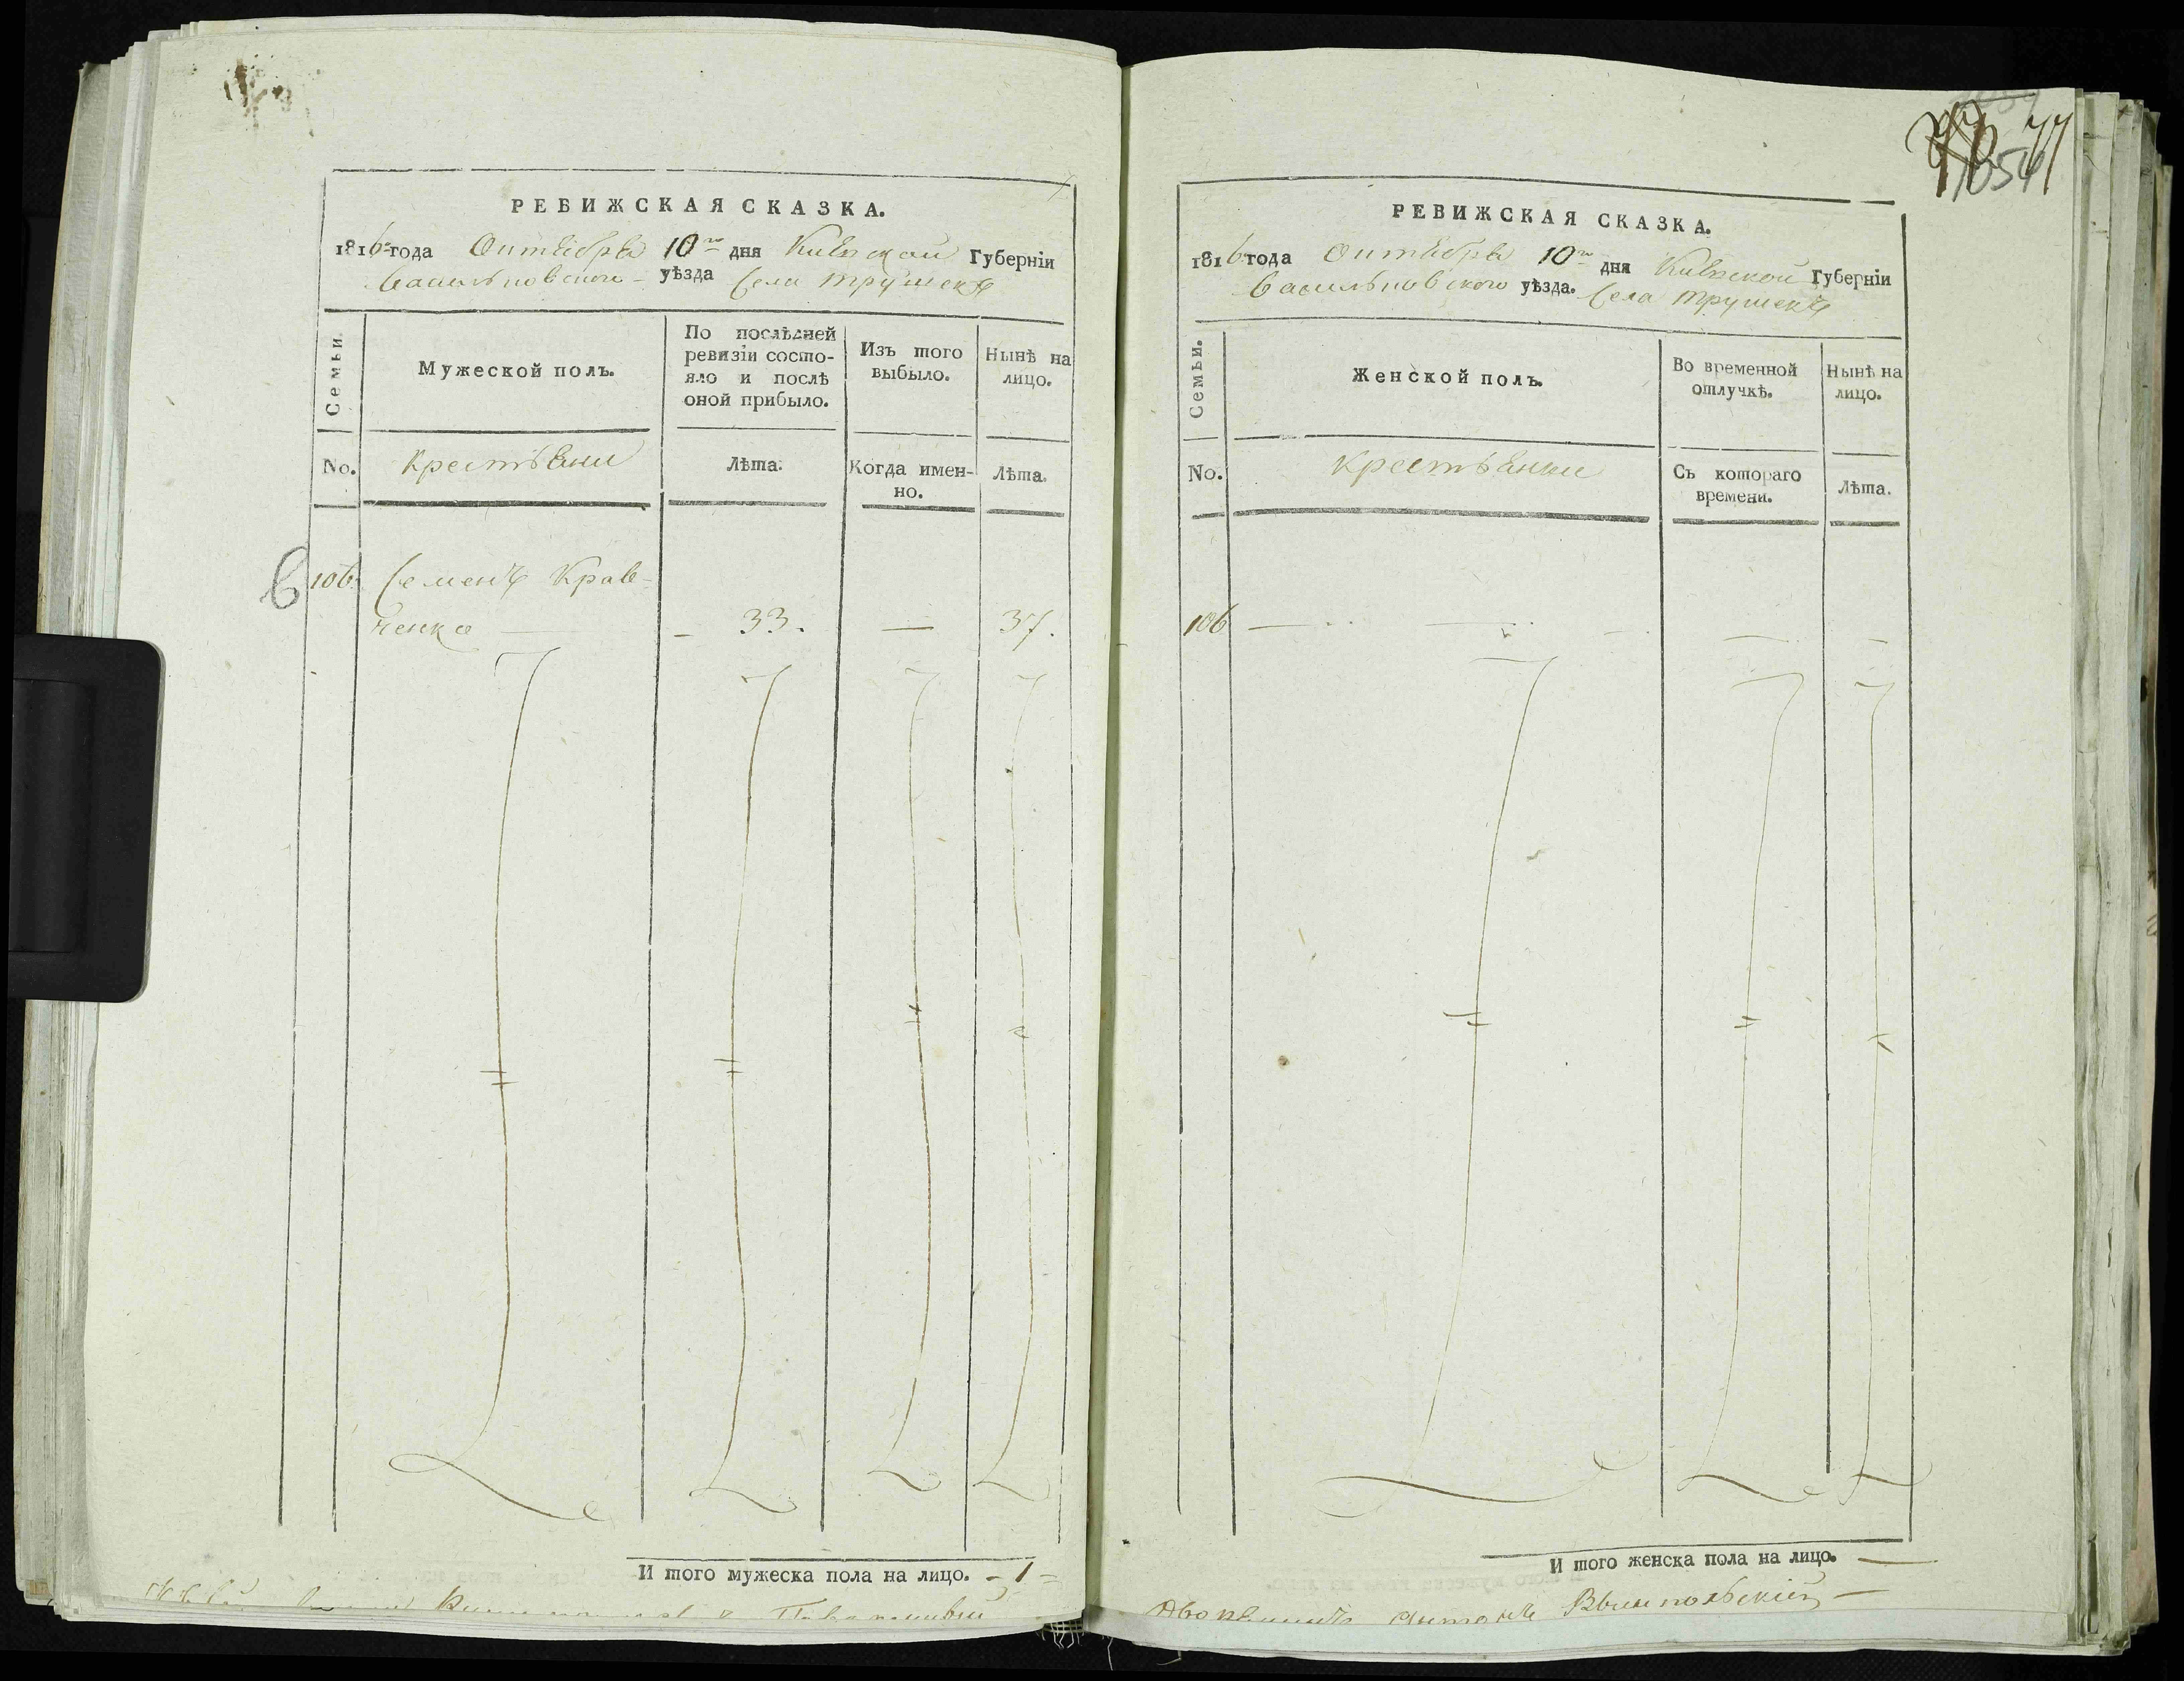 РЕВИЖСКАЯ СКАЗКА.
1816го года Октября 10го дня Киевской Губерніи
Васильковского уѣзда Села Трушекъ
Семьи.
Мужеской полъ.
По послѣдней
ревизіи состо-
яло и послѣ
оной прибыло.
Изъ того
выбыло.
Нынѣ на
лицо.
No.
крестьяни
Лѣта.
Когда имен-
но.
Лѣта.
106. Семенъ Крав-
ченко — 33. — 37.
И того мужеска пола на лицо. - 1 -
77
1054
РЕВИЖСКАЯ СКАЗКА.
1816 года Октября 10го дня Киевской Губерніи
Васильковского уѣзда. Села Трушекъ
Семьи.
Женской полъ.
Во временной
отлучкѣ.
Нынѣ на
лицо.
No.
крестьянки
Съ котораго
времени.
Лѣта.
106 — — — —
И того женска пола на лицо. —
Антонъ